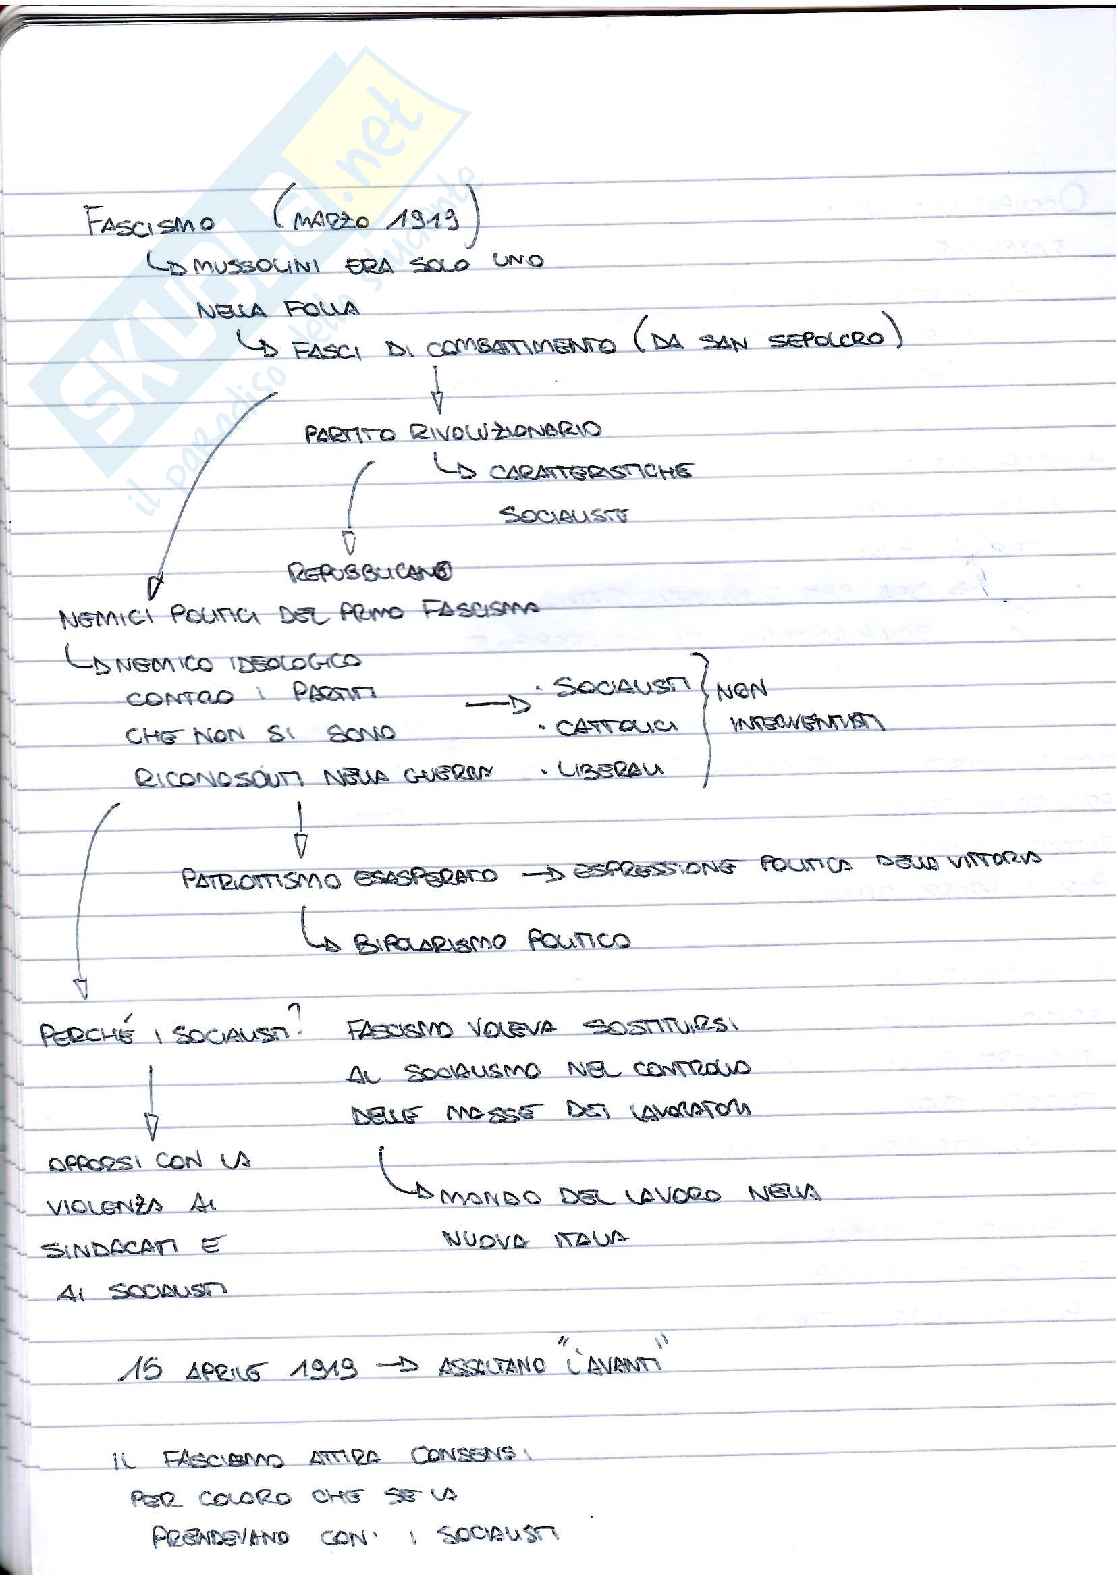 SKUOLA.net
il paradiso dello studente
FASCISMO (MARZO 1919)
MUSSOLINI ERA SOLO UNO
NELLA FOLLA
FASCI DI COMBATTIMENTO (DA SAN SEPOLCRO)
PARTITO RIVOLUZIONARIO
CARATTERISTICHE
SOCIALISTE
REPUBBLICANO
NEMICI POLITICI DEL PRIMO FASCISMO
NEMICO IDEOLOGICO
CONTRO I PARTITI
CHE NON SI SONO
RICONOSCIUTI NELLA GUERRA
· SOCIALISTI
· CATTOLICI
· LIBERALI
NON
INTERVENTISTI
PATRIOTTISMO ESASPERATO → ESPRESSIONE POLITICA DELLA VITTORIA
BIPOLARISMO POLITICO
PERCHÉ I SOCIALISTI?
FASCISMO VOLEVA SOSTITUIRSI
AL SOCIALISMO NEL CONTROLLO
DELLE MASSE DEI LAVORATORI
MONDO DEL LAVORO NELLA
NUOVA ITALIA
OPPORSI CON LA
VIOLENZA AI
SINDACATI E
AI SOCIALISTI
15 APRILE 1919 → ASSALTANO "L'AVANTI"
IL FASCISMO ATTIRA CONSENSI
PER COLORO CHE SE LA
PRENDEVANO CON I SOCIALISTI